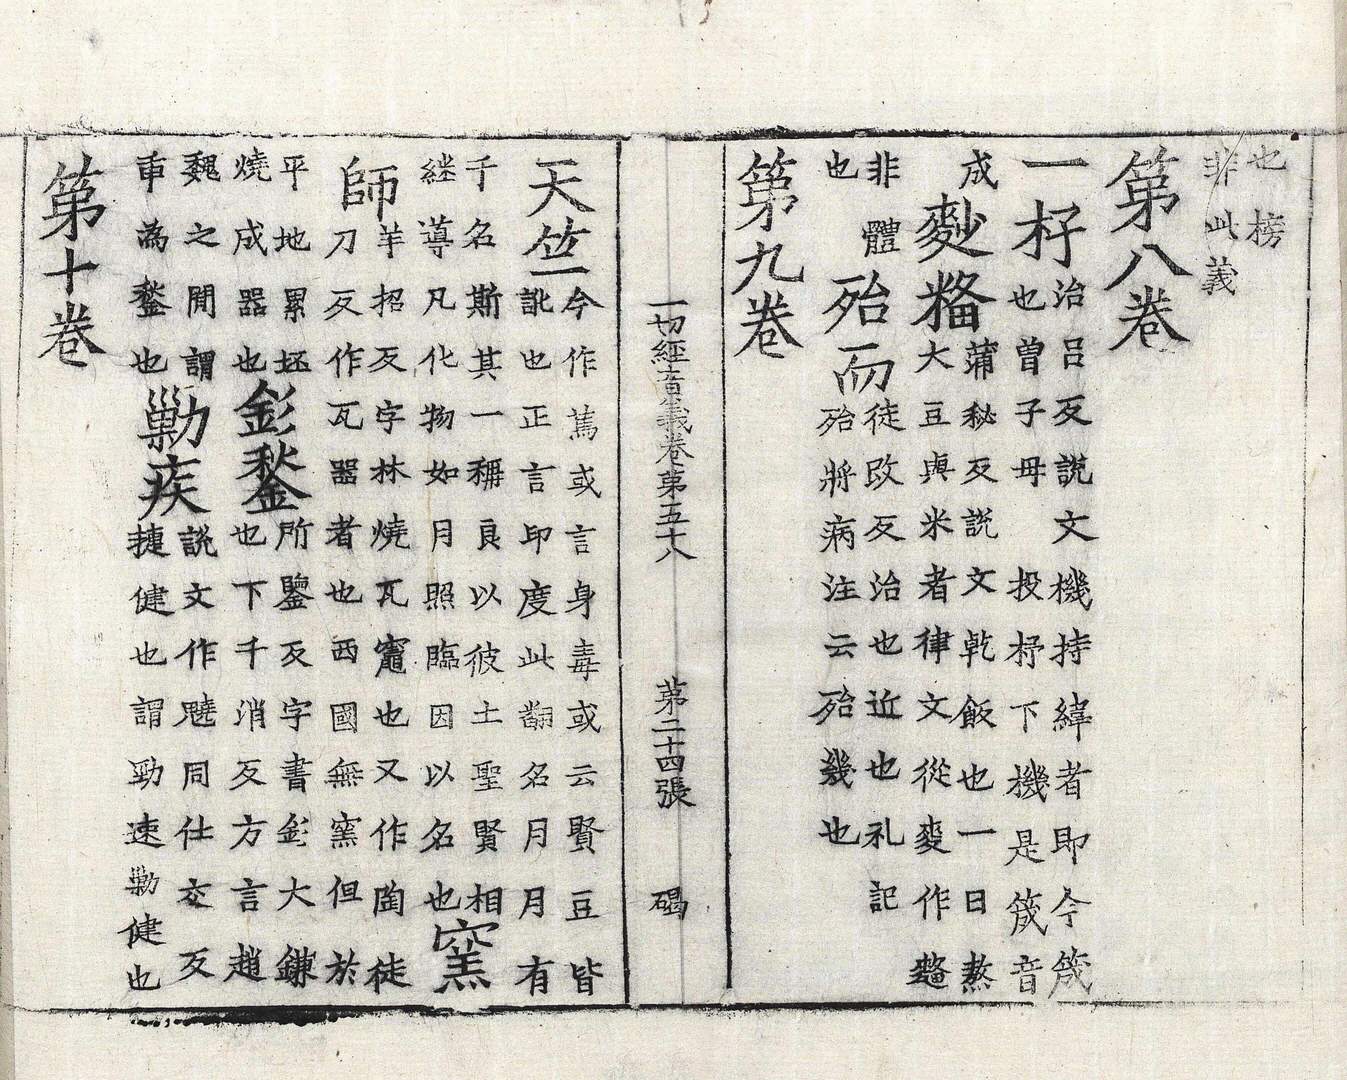 也榜
非此義
第八卷
一杼
治呂反說文機持緯者即今筬
也曾子母投杼下機是筬音
成
麨𥻨
蒲秘反說文乾飯也一曰熬
大豆與米者律文從麥作䴺
非體
也
殆而
徒改反治也近也礼記
殆將病注云殆幾也
第九卷
一切經音義卷第五十八 第二十四張 碣
天竺
今作篤或言身毒或云賢豆皆
訛也正言印度此翻名月月有
千名斯其一稱良以彼土聖賢相
継導凡化物如月照臨因以名也
窯師
羊招反字林燒瓦竈也又作陶徒
刀反作瓦器者也西國無窯但於
平地累坯
燒成器也
釤鍫
所鑒反字書釤大鎌
也下千消反方言趙
魏之閒謂
臿為鍫也
勦疾
說文作魑同仕交反
揵健也謂勁速勦健也
第十卷